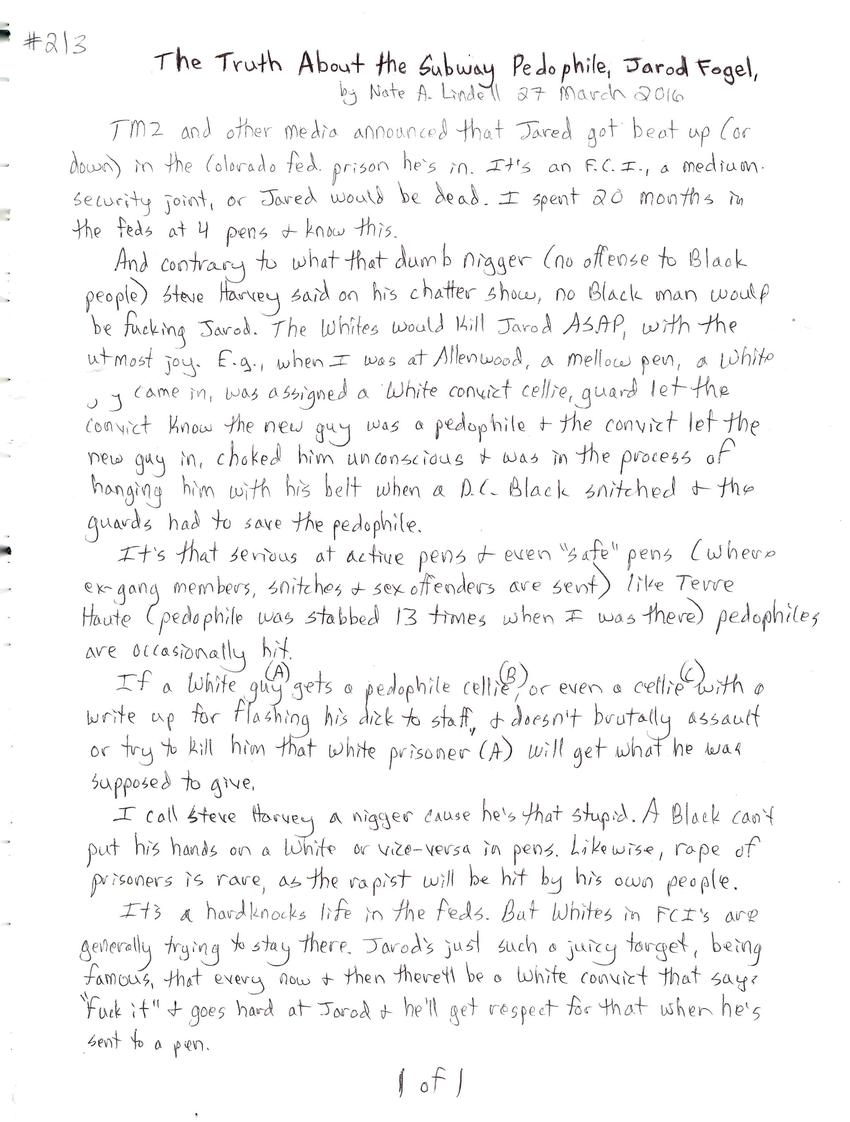 #213
The Truth About the Subway Pedophile, Jarod Fogel,
by Nate A. Lindell 27 March 2016
TMZ and other media announced that Jared got beat up (or
down) in the Colorado fed. prison he's in. It's an F.C.I., a medium-
security joint, or Jared would be dead. I spent 20 months in
the feds at 4 pens + know this.
And contrary to what that dumb nigger (no offense to Black
people) Steve Harvey said on his chatter show, no Black man would
be fucking Jarod. The Whites would kill Jarod ASAP, with the
utmost joy. E.g., when I was at Allenwood, a mellow pen, a White
came in, was assigned a White convict cellie, guard let the
convict know the new guy was a pedophile + the convict let the
new guy in, choked him unconscious + was in the process of
hanging him with his belt when a D.C. Black snitched + the
guards had to save the pedophile.
It's that serious at active pens + even "safe" pens (where
ex-gang members, snitches + sex offenders are sent) like Terre
Haute (pedophile was stabbed 13 times when I was there) pedophiles
are occasionally hit.
If a White guy (A) gets a pedophile cellie (B), or even a cellie (C) with a
write up for flashing his dick to staff, + doesn't brutally assault
or try to kill him that white prisoner (A) will get what he was
supposed to give.
I call Steve Harvey a nigger cause he's that stupid. A Black can't
put his hands on a White or vize-versa in pens. Likewise, rape of
prisoners is rare, as the rapist will be hit by his own people.
It's a hardknocks life in the feds. But Whites in FCI's are
generally trying to stay there. Jarod's just such a juicy target, being
famous, that every now + then there'll be a White convict that says
"Fuck it" + goes hard at Jarod + he'll get respect for that when he's
sent to a pen.
1 of 1